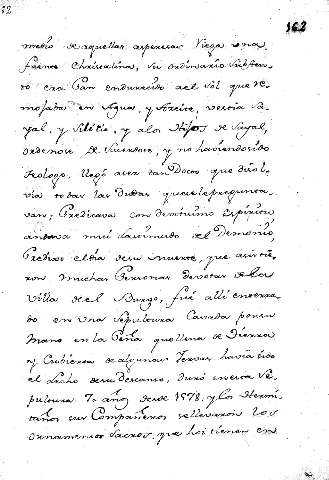 62
162
medio de aquellas asperesas Viega una
fuente Christalina, su ordinario sustento
to era Pan endurecido al Sol que re-
mojaba en Agua, y Aceite, vestia Sa-
yal, y Silicio, y a los
ordenose de Sacerdote, y no haviendo sido
Teologo, llegó a ser tan Docto que disol-
via todas las Dudas que se le pregunta-
van; Predicava con devotisimo Espiritu
andava mui lastimado del Demonio,
Predixo el dia de su muerte, que asistie-
ron muchas Personas devotas de la
Villa de el Burgo, fué alli enterra-
do en una Sepultura Cavada por su
Mano en la Peña que llena de Tierra
y Cubierta de algunas Yervas havia sido
el Lecho de su Descanso, duró en esta Se-
pultura 7. años desde 1578. y los Hermi-
taños sus Compañeros se llevaron los
ornamentos Sacros, que hoi tienen en